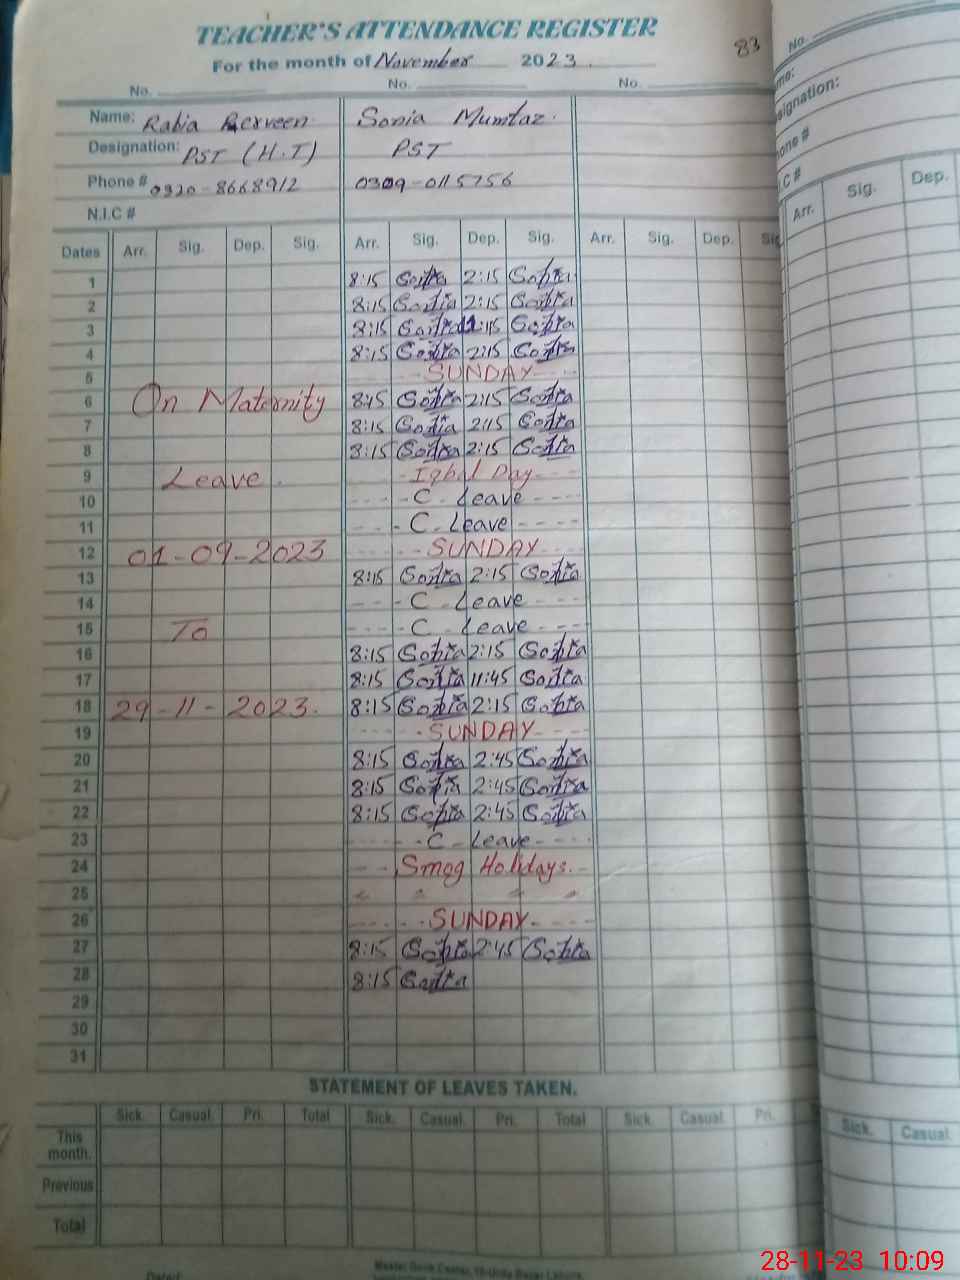 TEACHER'S ATTENDANCE REGISTER
For the month of November 2023.
83
No. No. No.
Name: Rabia Perveen Sonia Mumtaz.
Designation: PST (H.T) PST
Phone # 0320-8668912 0309-0115756
N.I.C #
Dates Arr. Sig. Dep. Sig. Arr. Sig. Dep. Sig. Arr. Sig. Dep. Sig.
1 8:15 Sonia 2:15 Sonia
2 8:15 Sonia 2:15 Sonia
3 8:15 Sonia Sonia
4 8:15 Sonia 2:15 Sonia
5 SUNDAY
6 On Maternity 8:15 Sonia 2:15 Sonia
7 8:15 Sonia 2:15 Sonia
8 8:15 Sonia 2:15 Sonia
9 Leave. Iqbal Day
10 C. Leave
11 C. Leave
12 01-09-2023 SUNDAY
13 8:15 Sonia 2:15 Sonia
14 C. Leave
15 To C. Leave
16 8:15 Sonia 2:15 Sonia
17 8:15 Sonia 11:45 Sonia
18 29-11-2023. 8:15 Sonia 2:15 Sonia
19 SUNDAY
20 8:15 Sonia 2:45 Sonia
21 8:15 Sonia 2:45 Sonia
22 8:15 Sonia 2:45 Sonia
23 C. Leave
24 Smog Holidays.
25 " " " "
26 SUNDAY
27 8:15 Sonia 2:45 Sonia
28 8:15 Sonia
29
30
31
STATEMENT OF LEAVES TAKEN.
Sick. Casual. Pri. Total Sick. Casual. Pri. Total Sick. Casual Pri.
This month.
Previous
Total
No.
me:
signation:
one #
I.C #
Arr. Sig. Dep.
Sick. Casual.
28-11-23 10:09